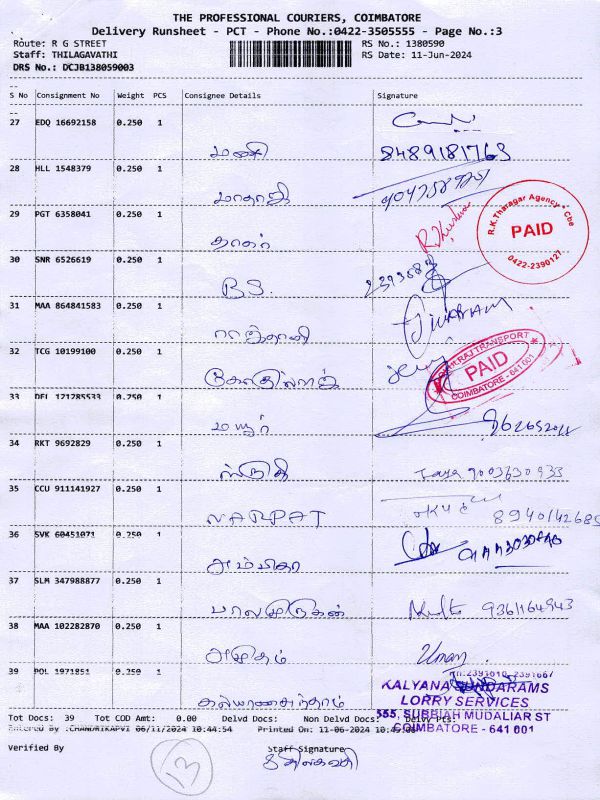 THE PROFESSIONAL COURIERS, COIMBATORE
Delivery Runsheet - PCT - Phone No.:0422-3505555 - Page No.:3
Route: R G STREET RS No.: 1380590
Staff: THILAGAVATHI RS Date: 11-Jun-2024
DRS No.: DCJB138059003
S No Consignment No Weight PCS Consignee Details Signature
27 EDQ 16692158 0.250 1
மணி 8489181763
28 HLL 1548379 0.250 1
29 PGT 6358041 0.250 1
R.K.Tharagar Agency * Cbe
PAID
0422-2390127
30 SNR 6526619 0.250 1
B.S.
31 MAA 864841583 0.250 1
32 TCG 10199100 0.250 1
TRANSPORT
PAID
COIMBATORE - 641 001
33 DEL 171785533 0.250 1
மயூர்
34 RKT 9692829 0.250 1
ஸ்ருதி 9003630933
35 CCU 911141927 0.250 1
NARPAT 8940142685
36 SVK 60451071 0.250 1
அம்பிகா
37 SLM 347988877 0.250 1
பாலமுருகன் 9361164943
38 MAA 102282870 0.250 1
அமுதம்
39 POL 1971851 0.250 1
கல்யாணசுந்தரம்
KALYANA SUNDARAMS
LORRY SERVICES
555, SUBBIAH MUDALIAR ST
COIMBATORE - 641 001
Tot Docs: 39 Tot COD Amt: 0.00 Delvd Docs: Non Delvd Docs: Delvy Pts:
Entered By :CHANDRIKAPVT 06/11/2024 10:44:54 Printed On: 11-06-2024
Verified By Staff Signature
13